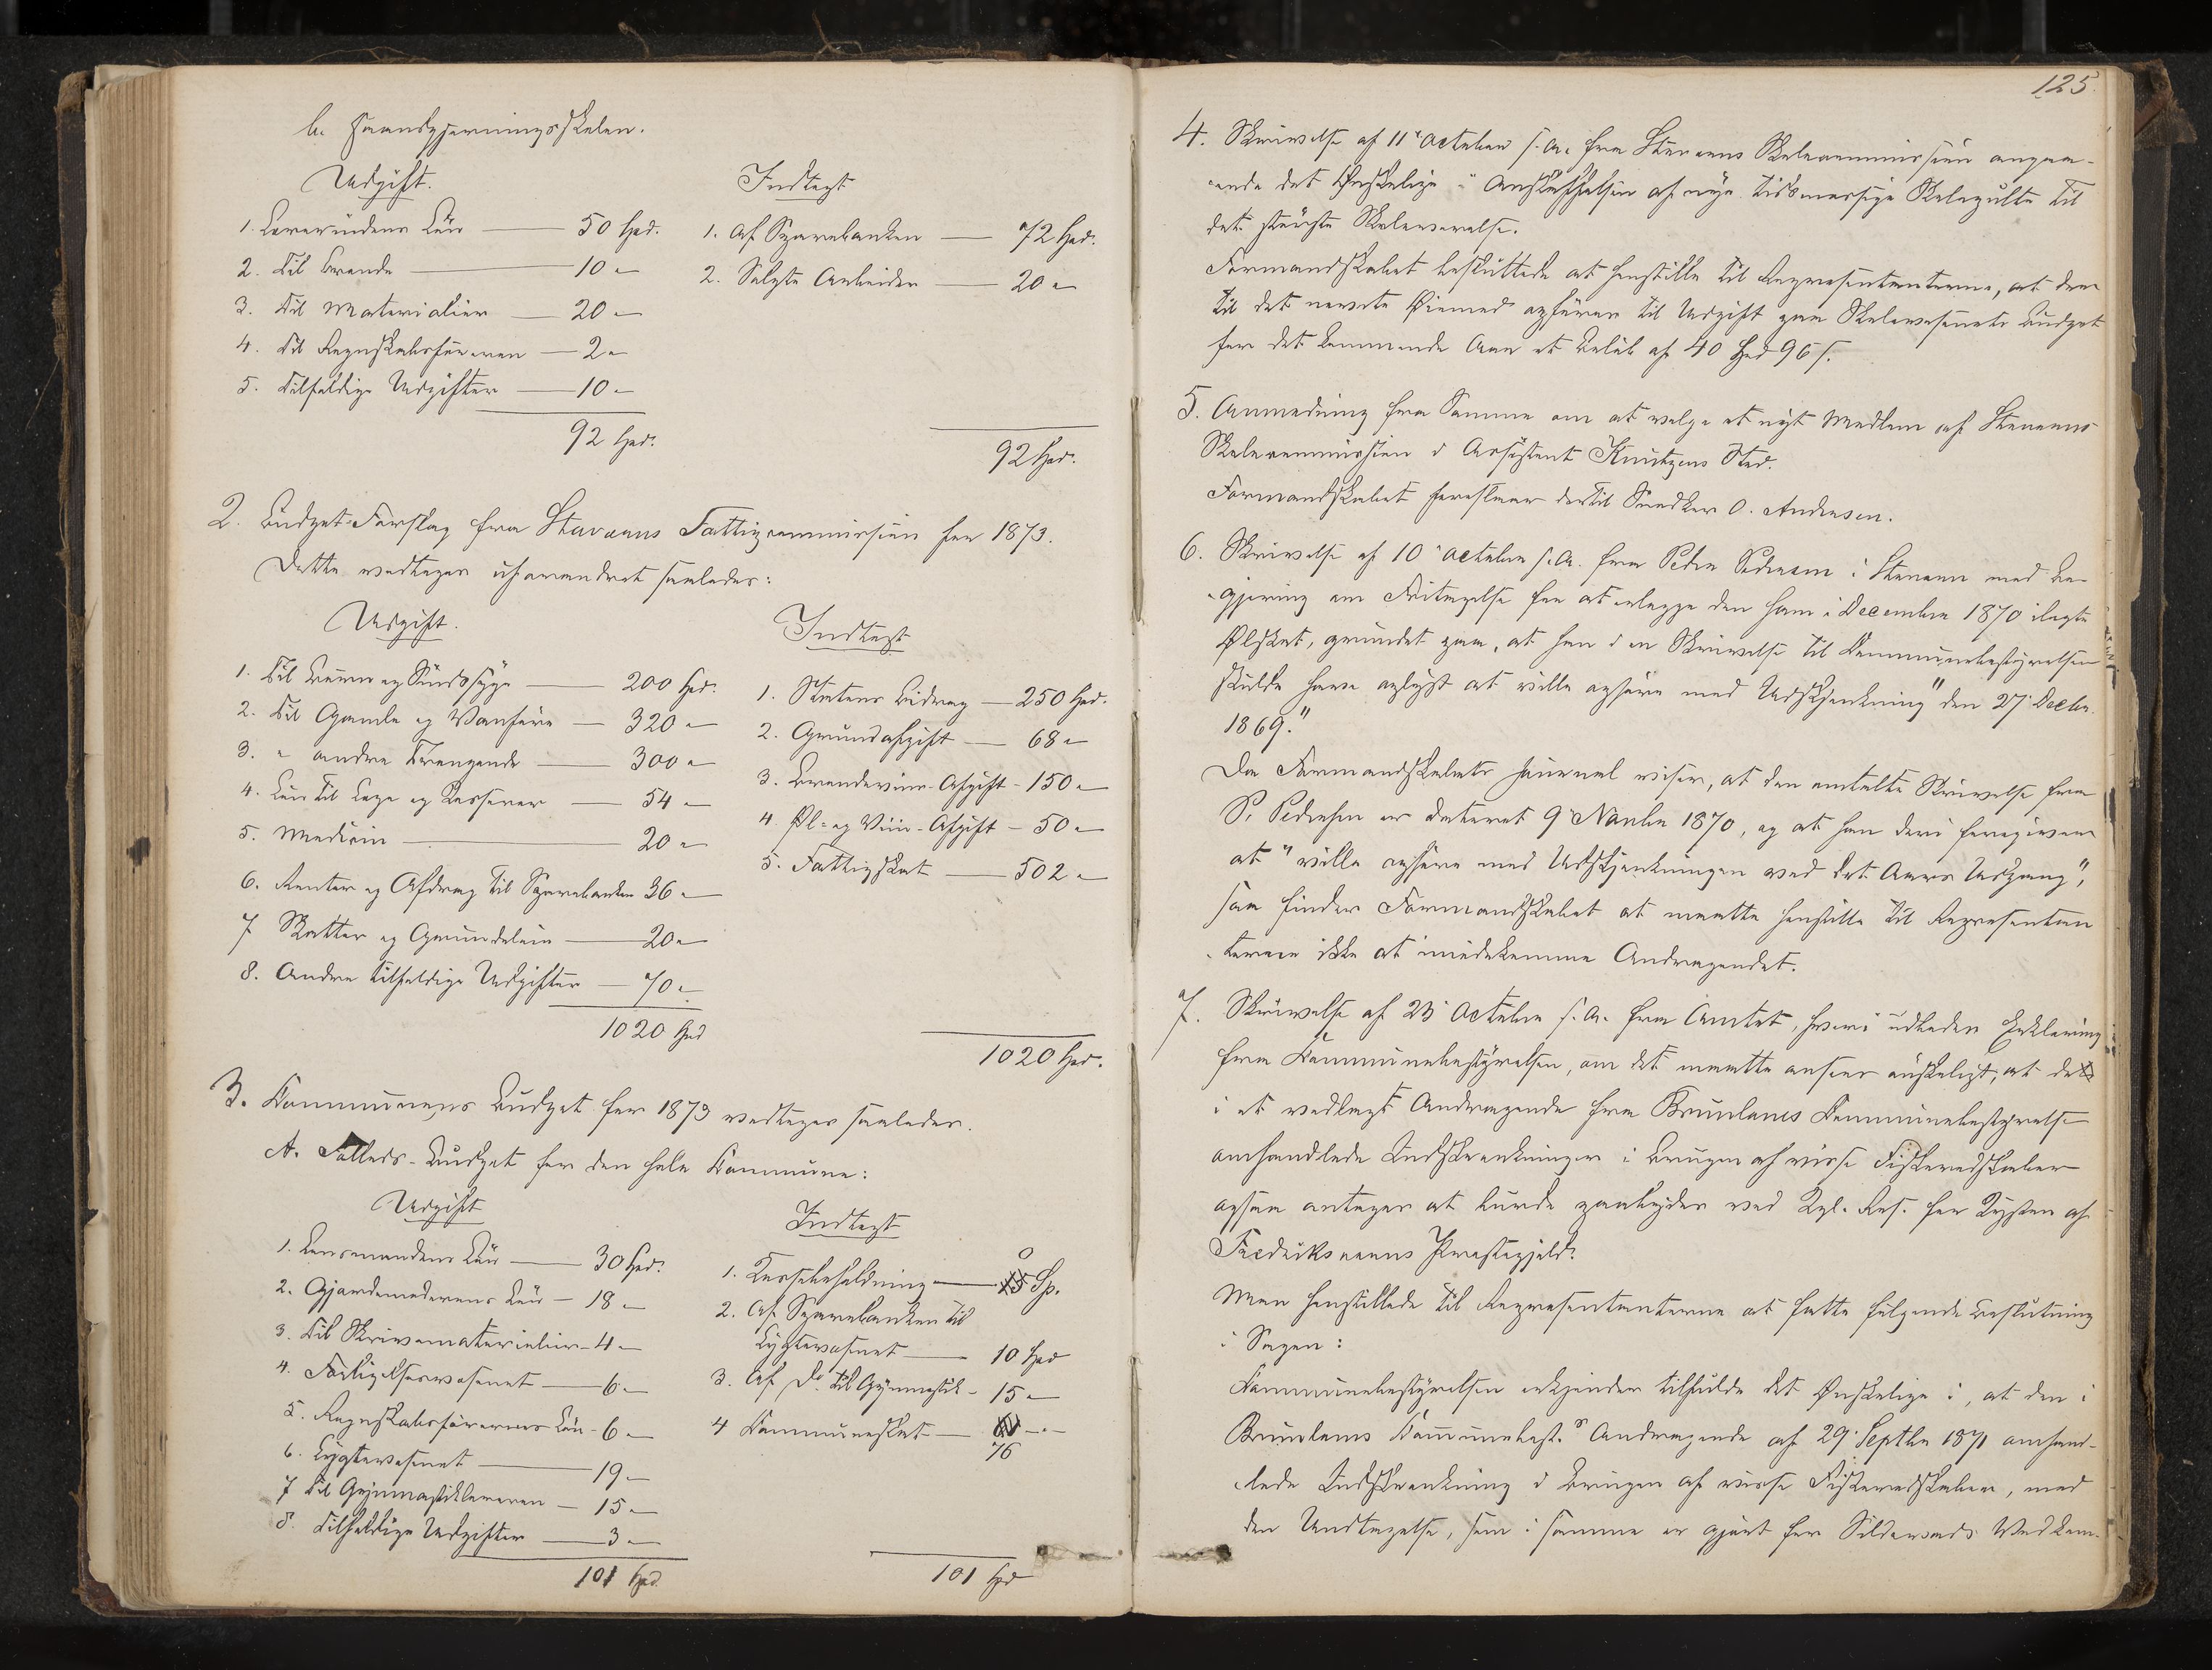 b. Haandgjerningsskolen.
Udgift.
1. Lærerindens Løn — 50 Spd.
2. Til Brænde — 10 "
3. Til Materialier — 20 "
4. Til Regnskabsføreren — 2 "
5. Tilfældige Udgifter — 10 "
92 Spd.
Indtægt
1. Af Sparebanken — 72 Spd.
2. Solgte Arbeider — 20 "
92 Spd.
2. Budget-Forslag fra Staværns Fattigcommission for 1873.
Dette vedtages uforandret saaledes:
Udgift.
1. Til Børn og Sindssyge — 200 Spd.
2. Til Gamle og Vanføre — 320 "
3. " andre Trængende — 300 "
4. Løn til Læge og Kasserer — 54 "
5. Medicin — 20 "
6. Renter og Afdrag til Sparebanken 36 "
7 Skatter og Grundleie — 20 "
8. Andre tilfældige Udgifter — 70 "
1020 Spd
Indtægt
1. Statens Bidrag — 250 Spd.
2. Grundafgift — 68 "
3. Brændeviins-Afgift - 150 "
4. Øl- og Viin-Afgift — 50 "
5. Fattigskat — 502 "
1020 Spd.
3. Kommunens Budget for 1873 vedtages saaledes.
A. Fælleds-Budget for den hele Kommune:
Udgift
1. Lensmandens Løn — 30 Spd.
2. Gjordemoderens Løn — 18 "
3. Til Skrivematerialier - 4 "
4. Forligelsesvæsenet — 6 "
5. Regnskabsførerens Løn - 6 "
6. Lygtevæsenet — 19 "
7 Til Gymnastiklæreren — 15 "
8. Tilfældige Udgifter — 3 "
101 Spd.
Indtægt
1. Kassebeholdning — 0 Sp.
2. Af Sparebanken til
Lygtevæsenet — 10 Spd
3. Af Do til Gymnastik - 15 "
4 Kommuneskat — 76
101 Spd
125.
4. Skrivelse af 11te October s. A. fra Staværns Skolecommission angaa-
ende det Ønskelige i Anskaffelsen af nye tidsmæssige Skolepulte til
det største Skoleværelse.
Formandskabet besluttede at henstille til Repræsentanterne, at der
til det nævnte Øiemed opføres til Udgift paa Skolevæsenets Budget
for det kommende Aar et Beløb af 40 Spd 96 s.
5. Anmodning fra Samme om at vælge et nyt Medlem af Staværns
Skolecommission i Assistent Knutzens Sted.
Formandskabet foreslaar dertil Snedker O. Andersen.
6. Skrivelse af 10de October s. A. fra Peder Pedersen i Staværn med Be-
gjæring om Fritagelse for at erlægge den ham i December 1870 ilagte
Ølskat, grundet paa, at han i en Skrivelse til Kommunebestyrelsen
skulde have opsagt at ville ophøre med Udskjænkning "den 27de Decbr.
1869."
Da Formandskabets Journal viser, at den omtalte Skrivelse fra
P. Pedersen er dateret 9de Novbr 1870, og at han deri foregiver
at "ville ophøre med Udskjænkningen ved det Aars Udgang",
saa finder Formandskabet at maatte henstille til Repræsentan
terne ikke at imødekomme Andragendet.
7. Skrivelse af 23de October s. A. fra Amtet, hvori udbedes Erklæring
fra Kommunebestyrelsen, om det maatte ansees ønskeligt, at det
i et vedlagt Andragende fra Brunlanes Kommunebestyrelse
omhandlede Indskrænkninger i Brugen af visse Fiskeredskaber
ogsaa antages at burde paabydes ved Kgl. Res. for Kysten af
Fredriksværns Præstegjeld.
Man henstillede til Repræsentanterne at fatte følgende Beslutning
i Sagen:
Kommunebestyrelsen erkjender tilfulde det Ønskelige i, at den i
Brunlanes Kommunebest.s Andragende af 29de Septbr 1871 omhand-
lede Indskrænkning i Brugen af visse Fiskeredskaber, med
den Undtagelse, som i samme er gjort for Sildevads Vedkom-